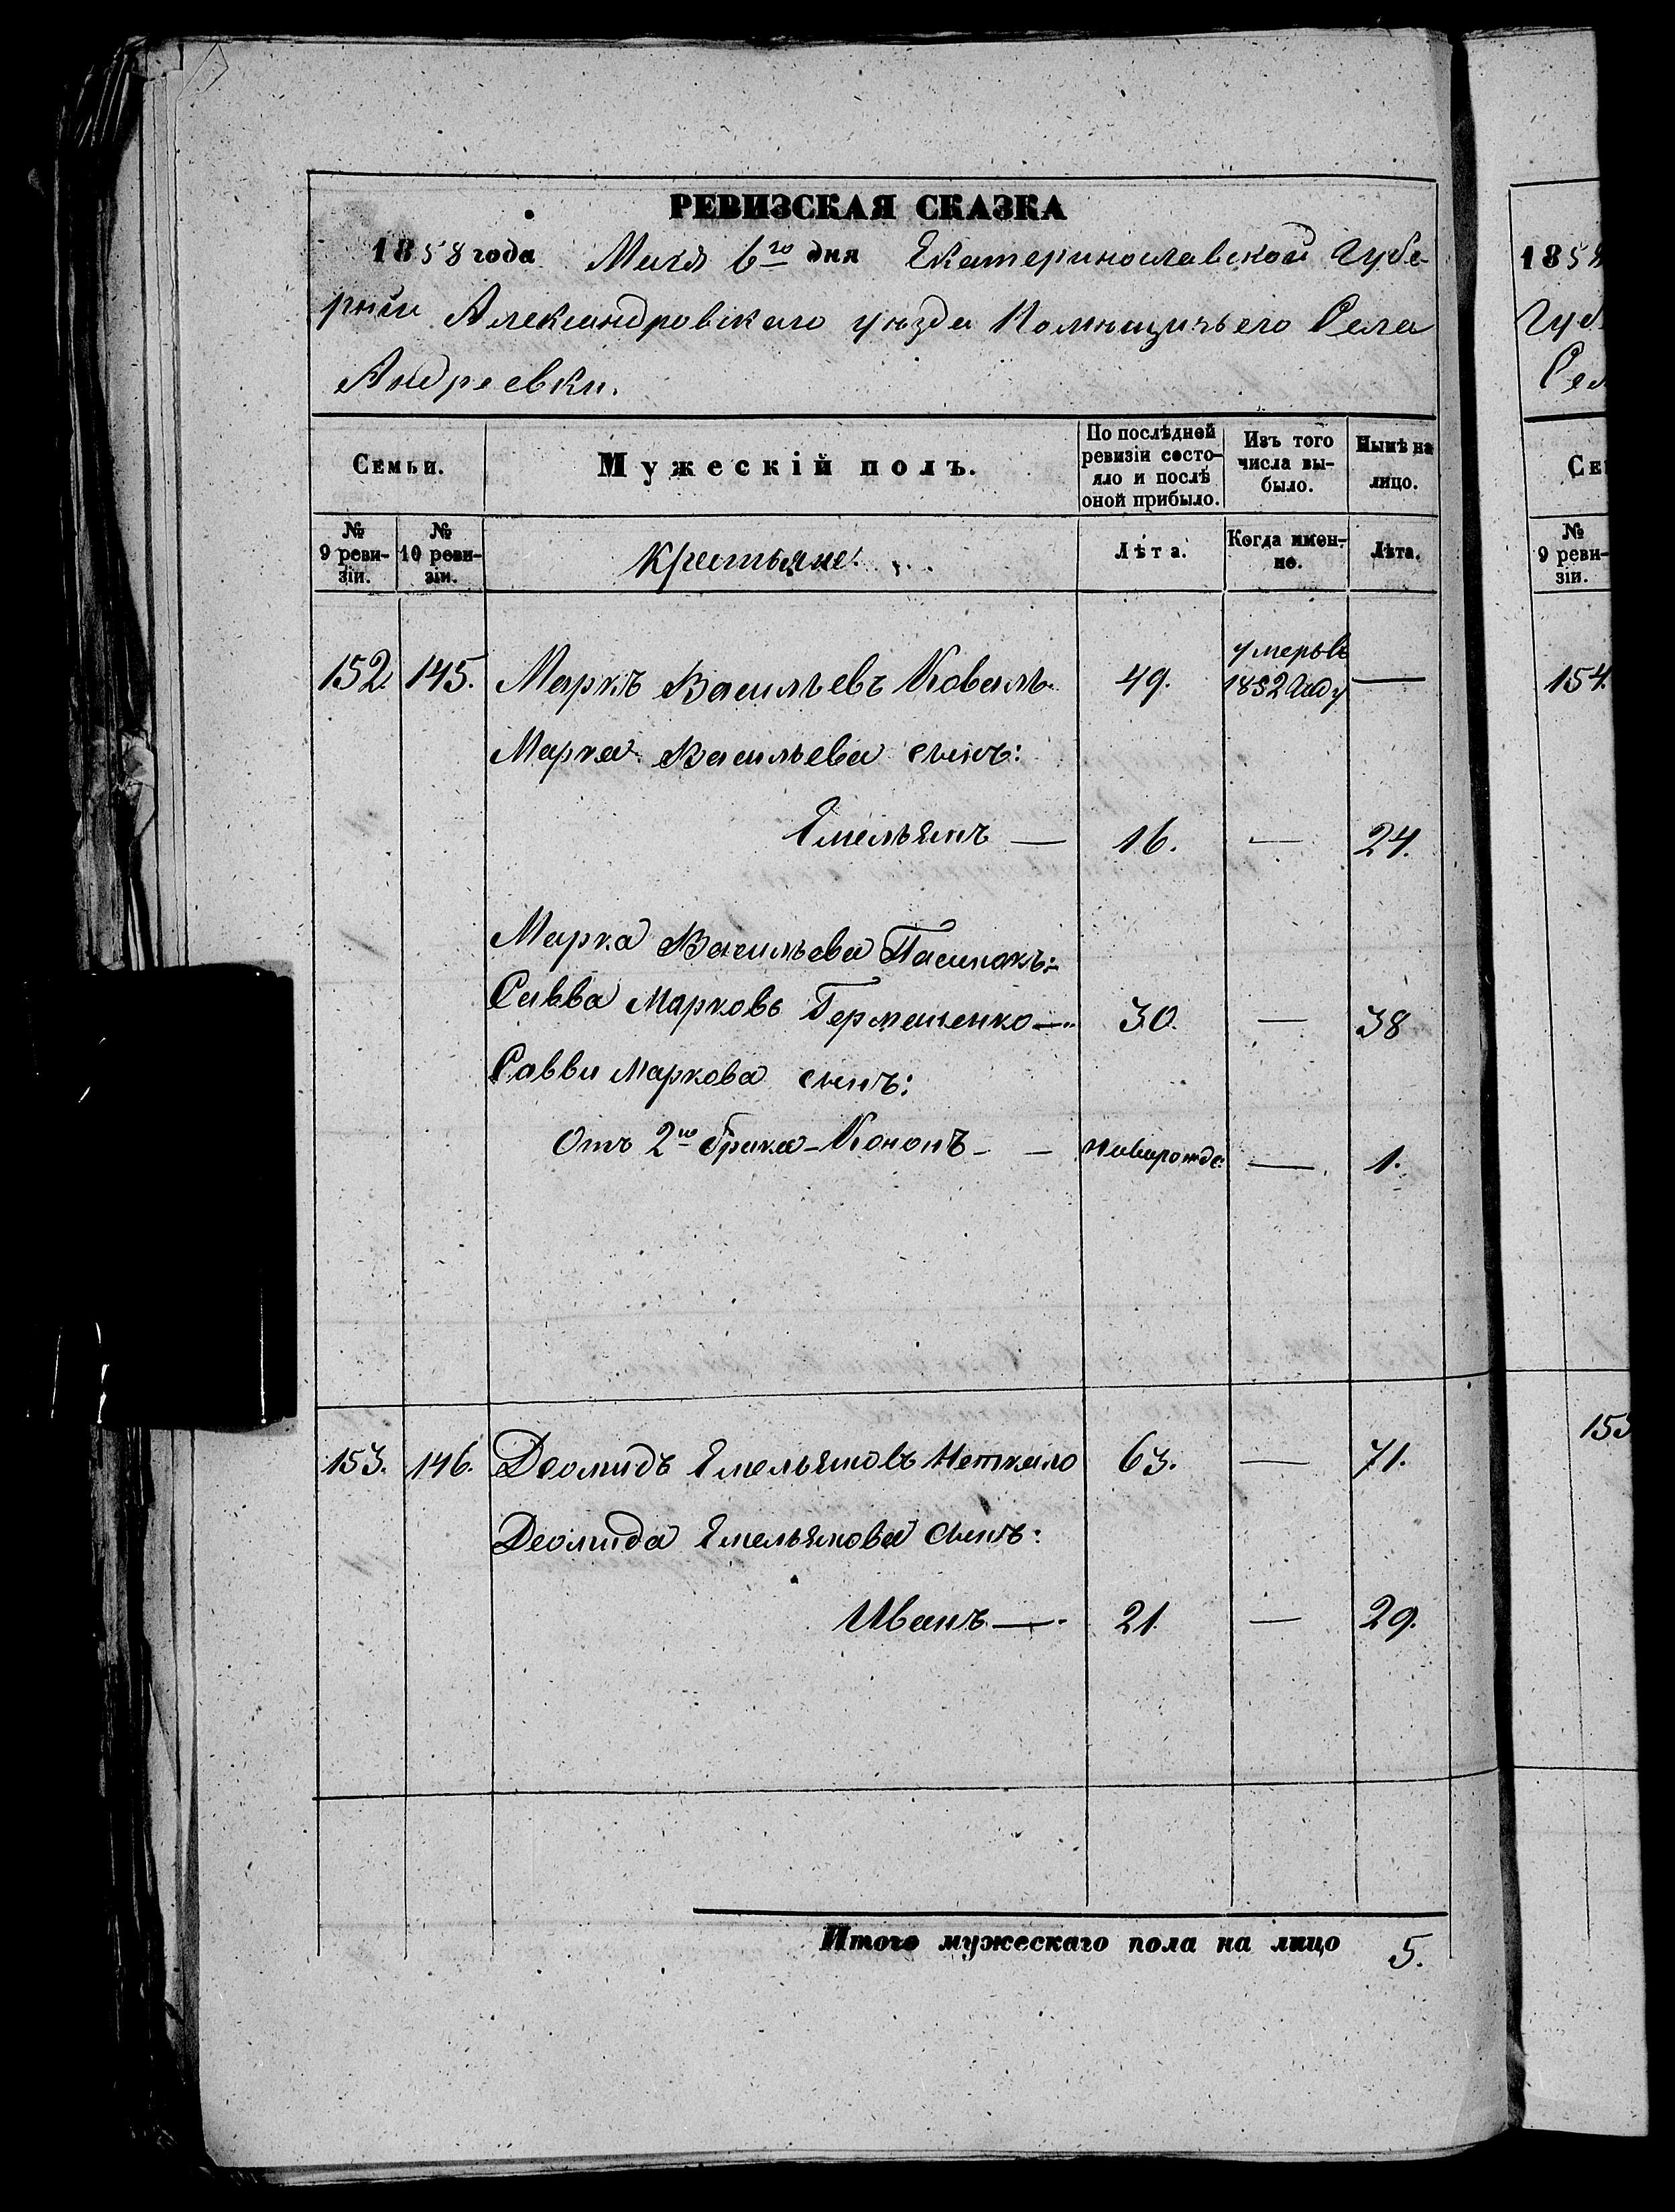 РЕВИЗСКАЯ СКАЗКА
1858 года Мая 6го дня Екатеринославской Губе-
рніи Александровскаго уѣзда Помѣщичьего Села
Андреевки.
Семьи. Мужескій полъ. По послѣдней ревизіи состо-яло и послѣ оной прибыло. Изъ того числа вы-было. Нынѣ на лицо.
№ 9 реви-зіи. № 10 реви-зіи. Крестьяне: Лѣта. Когда имен-но. Лѣта.
152. 145. Маркъ Васильевъ Коваль. 49. умеръ въ 1852 году —
Марка Васильева сынъ:
Емельянъ — 16. — 24.
Марка Васильева Пасинокъ:
Савва Марковъ Гермашенко — 30. — 38
Савви Маркова сынъ:
Отъ 2го брака - Кононъ - — Новорожде: — 1.
153. 146. Деомидъ Емельяновъ Неткало 63. — 71.
Деомида Емельянова сынъ:
Иванъ — 21. — 29.
Итого мужескаго пола на лицо 5.
1858
Губ
Сел
Сем
№
9 реви-
зіи.
154.
155